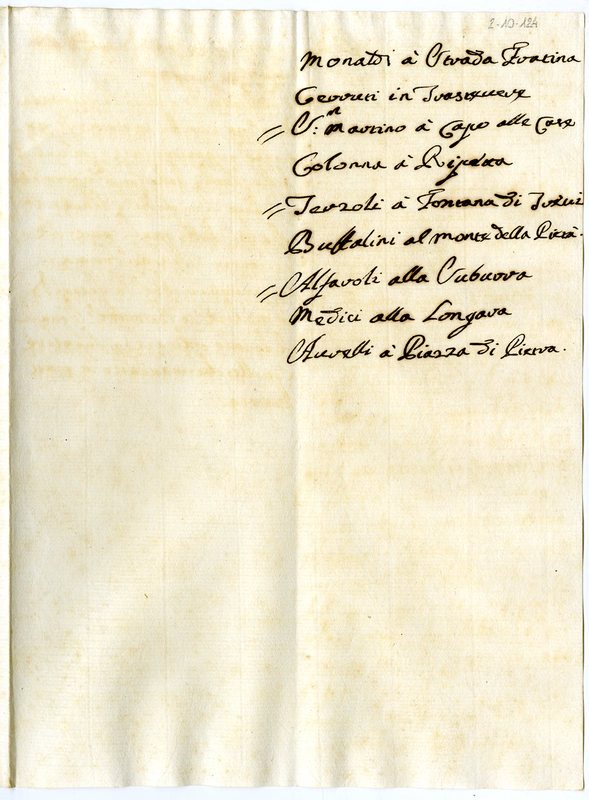 2-10-124
Monaldi à Strada Fratina
Cerruti in Trastevere
S: Martino à Capo alle Case
Colonna à Ripetta
Terzoli à Fontana di Trevi
Buffalini al monte della Pietà.
Alfaroli alla Suburra
Medici alla Longara
Aurelli à Piazza di Pietra.